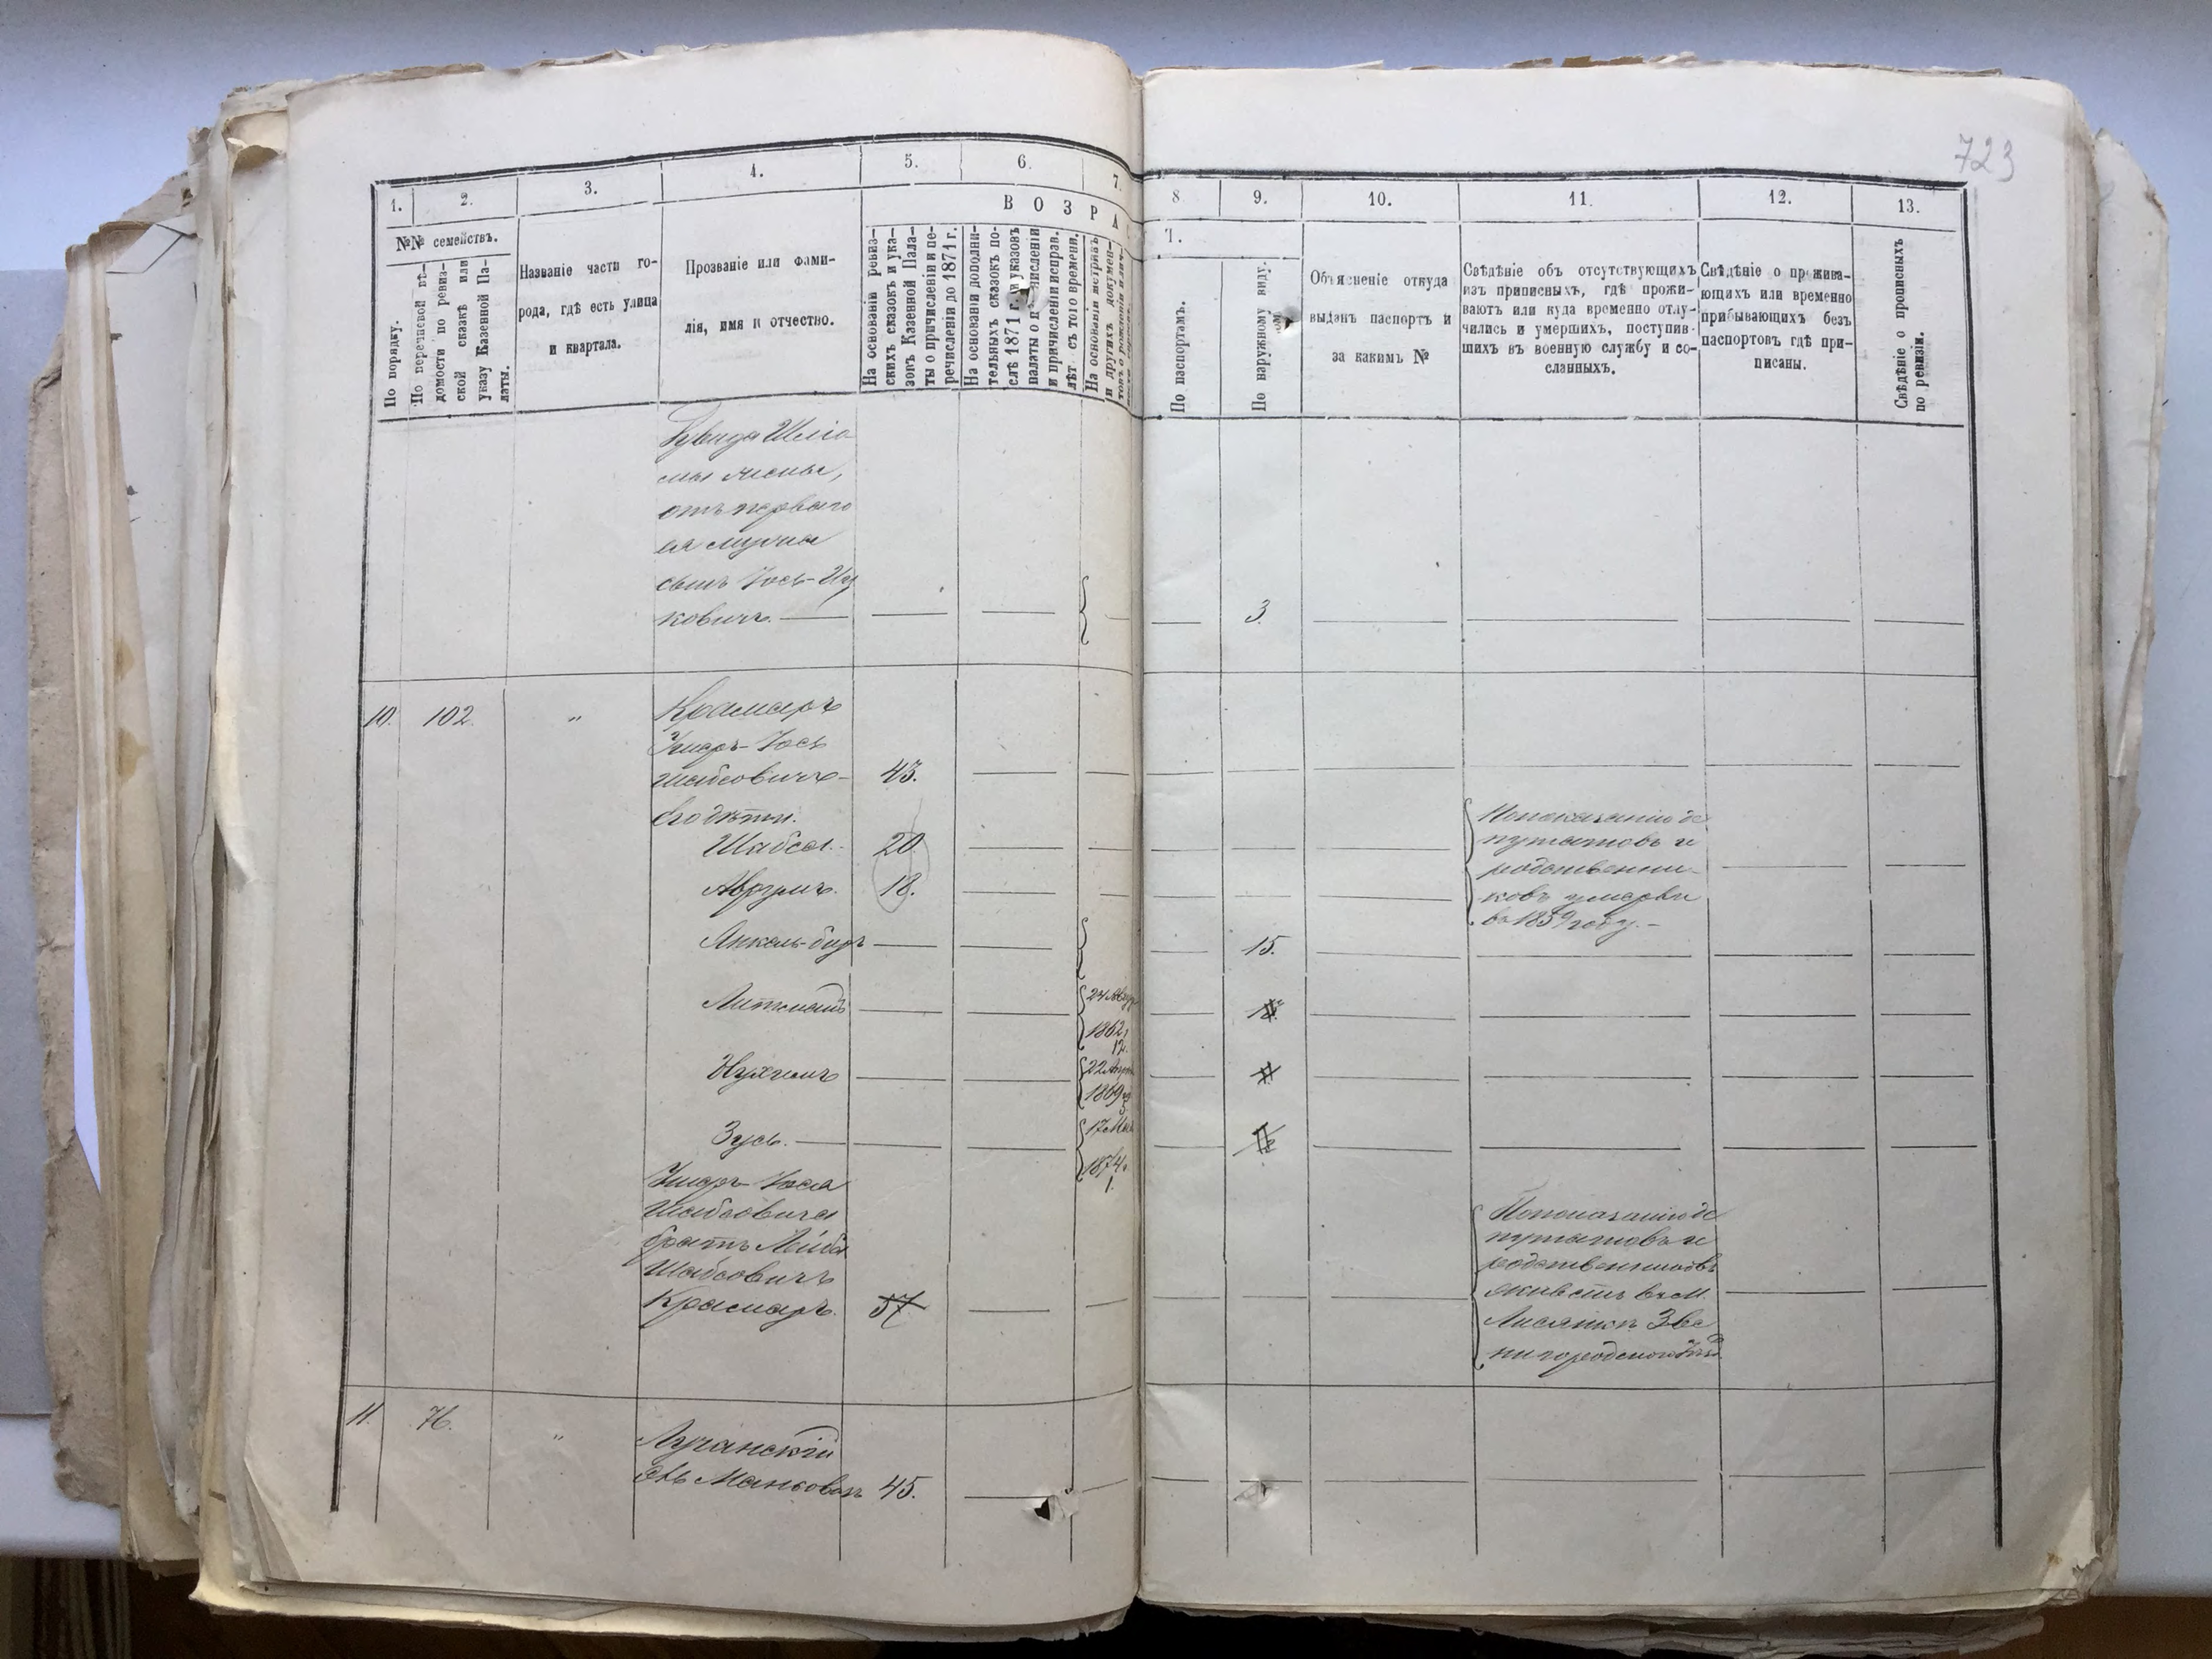 723
1. 2. 3. 4. 5. 6. 7. 8 9. 10. 11. 12. 13.
№№ семействъ.
По порядку.
По перечневой вѣ-
домости по ревиз-
ской сказкѣ или
указу Казенной Па-
латы.
Названіе части го-
рода, гдѣ есть улица
и квартала.
Прозваніе или фами-
лія, имя и отчество.
В О З Р А
Т.
На основаніи ревиз-
скихъ сказокъ и ука-
зовъ Казенной Пала-
ты о причисленіи и пе-
речисленіи до 1871 г.
На основаніи дополни-
тельныхъ сказокъ по-
слѣ 1871 г. и указовъ
палаты о численіи
и причисленіи исправ.
лѣт съ того времени.
На основаніи метрикъ
и другихъ докумен-
По паспортамъ.
По наружному виду.
Объясненіе откуда
выданъ паспортъ и
за какимъ №
Свѣдѣніе объ отсутствующихъ
изъ приписныхъ, гдѣ прожи-
ваютъ или куда временно отлу-
чились и умершихъ, поступив-
шихъ въ военную службу и со-
сланныхъ.
Свѣдѣніе о прожива-
ющихъ или временно
прибывающихъ безъ
паспортовъ гдѣ при-
писаны.
Свѣдѣніе о прописныхъ
по ревизіи.
Шлiо
мы жены,
отъ перваго
ея мужа
сынъ Іось-Иц
ковичъ. — 3.
10. 102. " Крамаръ
Умеръ-Іось
Шабсовичъ- 43.
Его дѣти.
Шабса. 20
Аврумъ. 18.
Попоказанію де
путатовъ и
родственни-
ковъ умерли
въ 1859 году. -
Янкель-беръ 15.
Литманъ 24 1862 12.
Нухимъ 22 1869 5
Зусь. — 17 1874. 1.
Умеръ-Іося
Шабсовича
братъ Лейба
Шабсовичъ
Крамаръ. 57
Попоказанію де
путатовъ и
родственниковъ
живетъ въ М.
Лисянкѣ Зве
нигородского Уѣзд
11. 76. " Лучанскій
Манковъ 45.